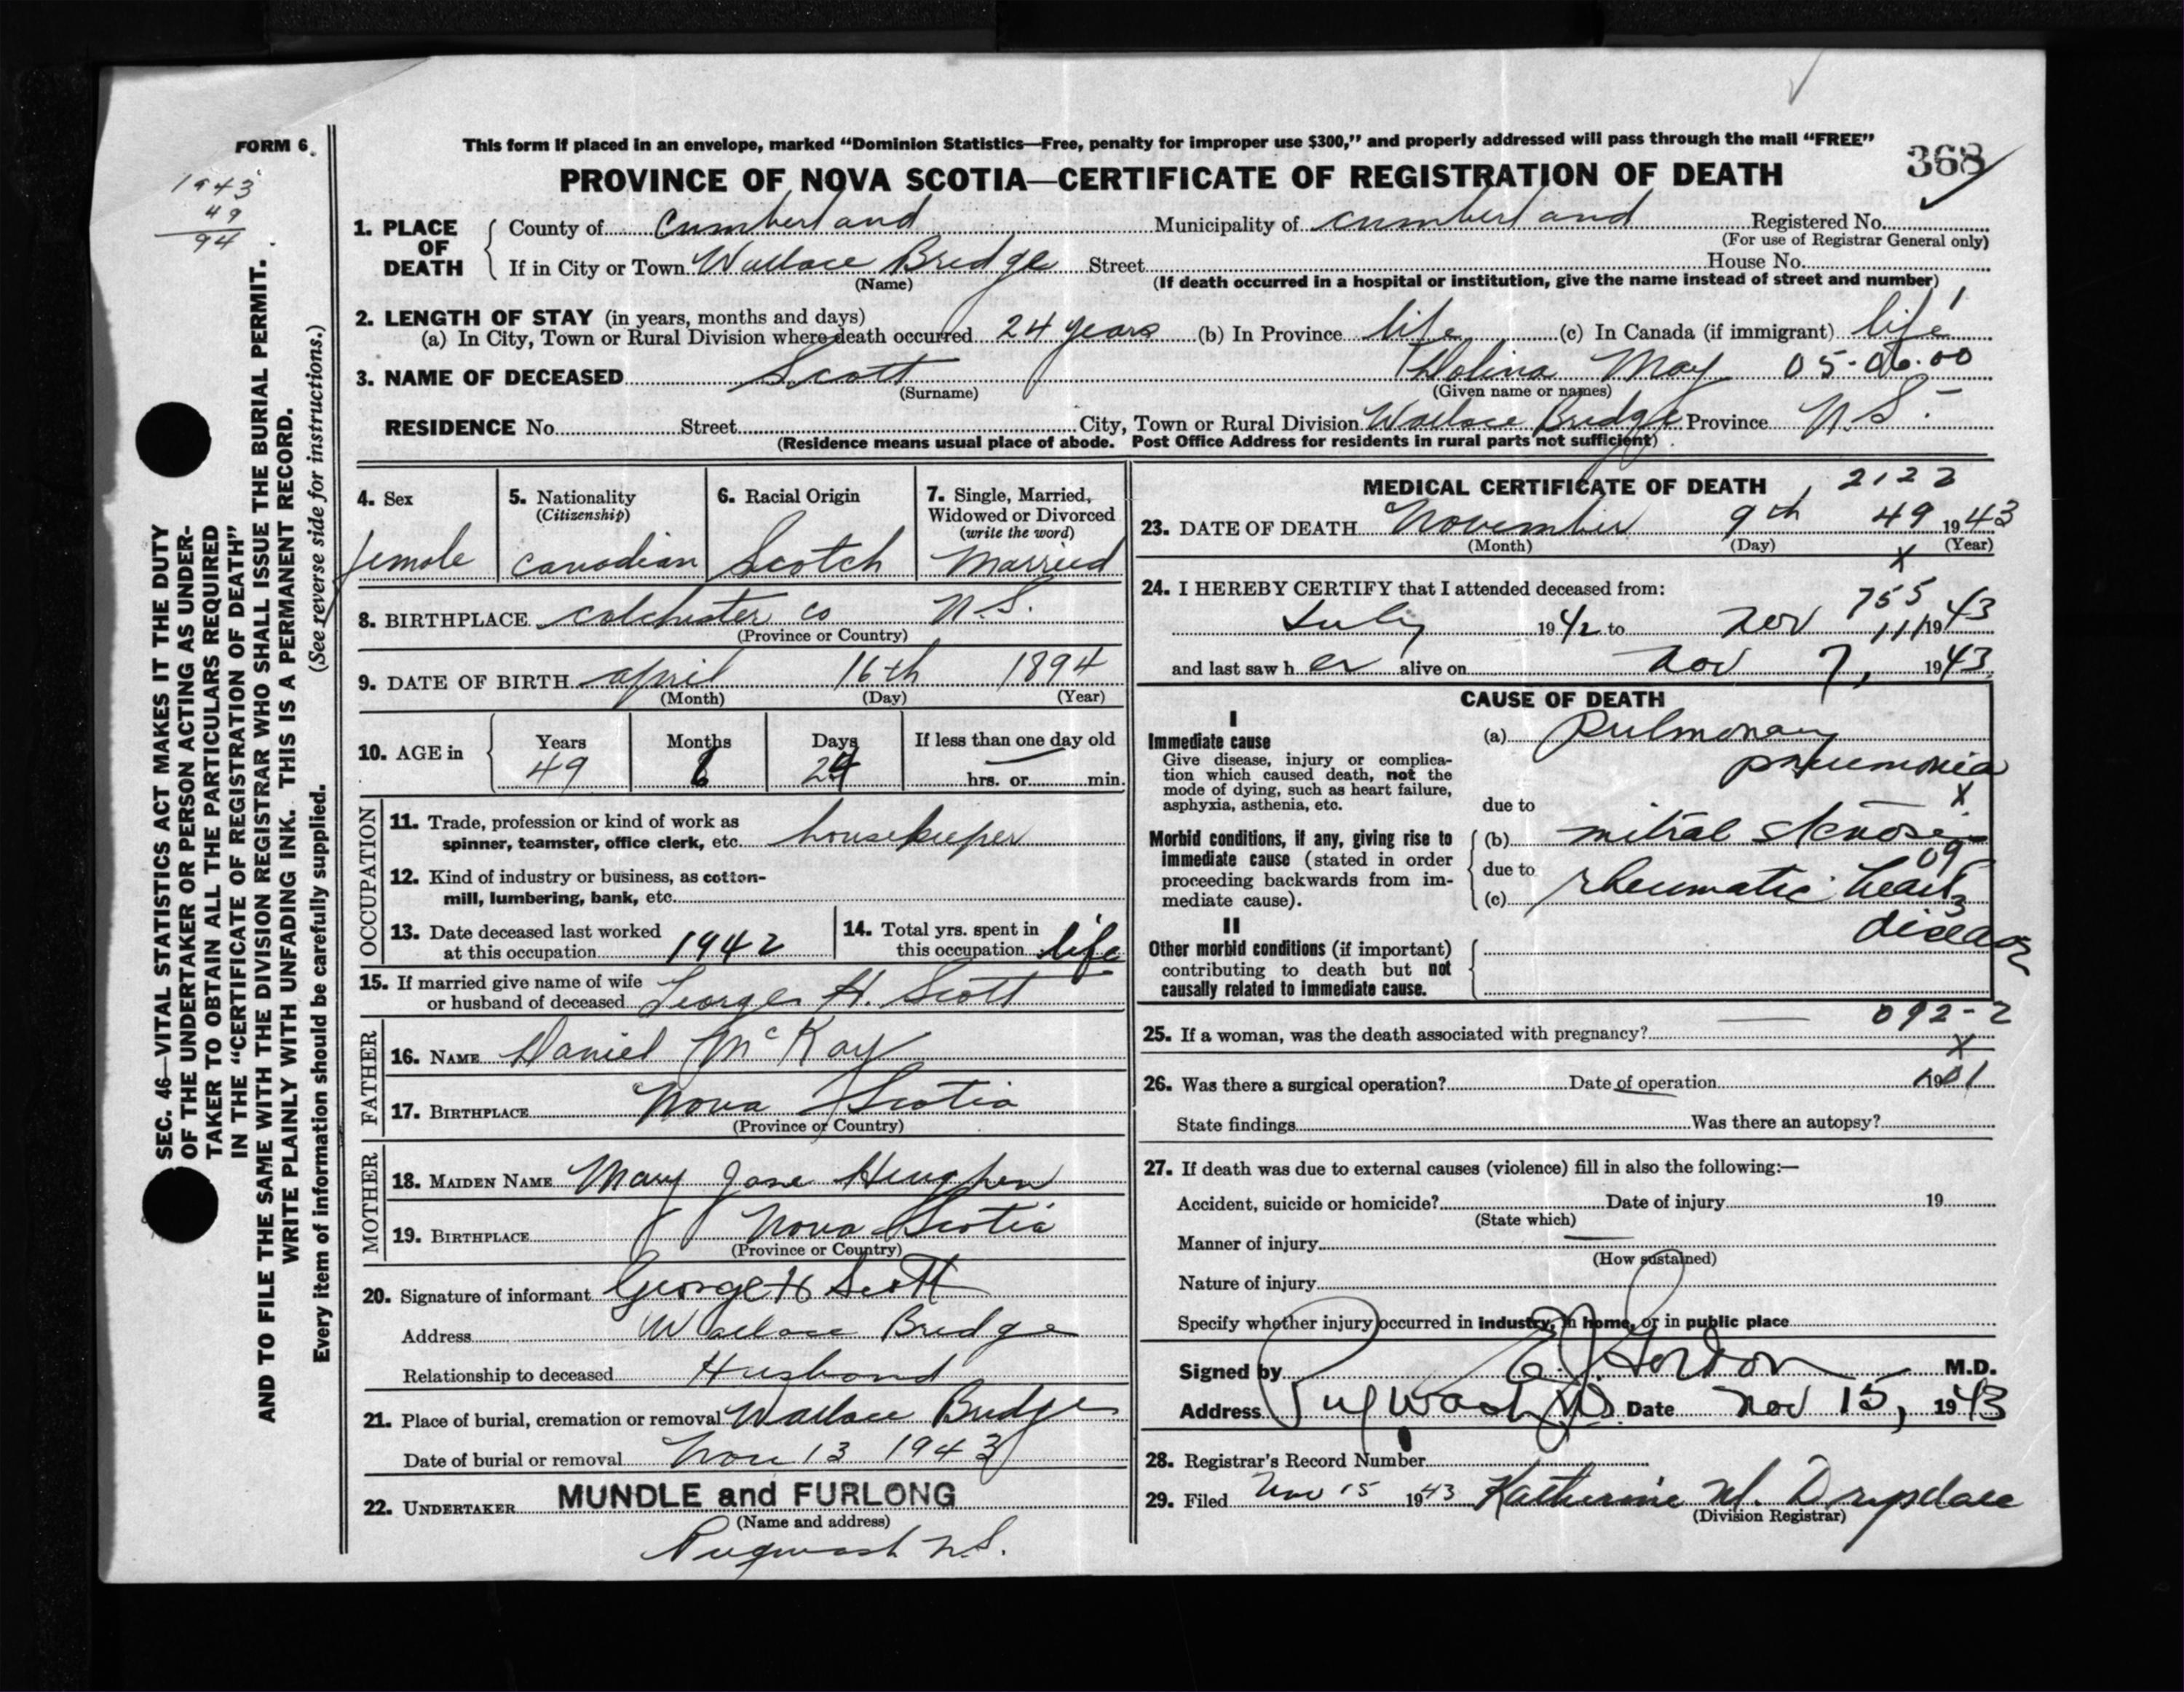 FORM 6.
This form if placed in an envelope, marked “Dominion Statistics—Free, penalty for improper use $300,” and properly addressed will pass through the mail “FREE”
368
1943
49
94
PROVINCE OF NOVA SCOTIA—CERTIFICATE OF REGISTRATION OF DEATH
1. PLACE OF DEATH County of Cumberland Municipality of Cumberland Registered No.
(For use of Registrar General only)
If in City or Town Wallace Bridge Street House No.
(Name) (If death occurred in a hospital or institution, give the name instead of street and number)
2. LENGTH OF STAY (in years, months and days)
(a) In City, Town or Rural Division where death occurred 24 years (b) In Province life (c) In Canada (if immigrant) life 1
3. NAME OF DECEASED Scott Dolina May 05-06-00
(Surname) (Given name or names)
RESIDENCE No. Street City, Town or Rural Division Wallace Bridge Province N.S.
(Residence means usual place of abode. Post Office Address for residents in rural parts not sufficient)
SEC. 46—VITAL STATISTICS ACT MAKES IT THE DUTY
OF THE UNDERTAKER OR PERSON ACTING AS UNDER-
TAKER TO OBTAIN ALL THE PARTICULARS REQUIRED
IN THE “CERTIFICATE OF REGISTRATION OF DEATH”
AND TO FILE THE SAME WITH THE DIVISION REGISTRAR WHO SHALL ISSUE THE BURIAL PERMIT.
WRITE PLAINLY WITH UNFADING INK. THIS IS A PERMANENT RECORD.
Every item of information should be carefully supplied. (See reverse side for instructions.)
4. Sex
female
5. Nationality
(Citizenship)
Canadian
6. Racial Origin
Scotch
7. Single, Married,
Widowed or Divorced
(write the word)
Married
8. BIRTHPLACE Colchester Co N.S.
(Province or Country)
9. DATE OF BIRTH April 16th 1894
(Month) (Day) (Year)
10. AGE in Years Months Days If less than one day old
49 6 24 hrs. or min.
OCCUPATION
11. Trade, profession or kind of work as
spinner, teamster, office clerk, etc. housekeeper
12. Kind of industry or business, as cotton-
mill, lumbering, bank, etc.
13. Date deceased last worked
at this occupation 1942
14. Total yrs. spent in
this occupation life
15. If married give name of wife
or husband of deceased George H. Scott
FATHER
16. NAME Daniel McKay
17. BIRTHPLACE Nova Scotia
(Province or Country)
MOTHER
18. MAIDEN NAME Mary Jane Hughen
19. BIRTHPLACE Nova Scotia
(Province or Country)
20. Signature of informant George H Scott
Address Wallace Bridge
Relationship to deceased Husband
21. Place of burial, cremation or removal Wallace Bridge
Date of burial or removal Nov 13 1943
22. UNDERTAKER MUNDLE and FURLONG
(Name and address)
Pugwash N.S.
MEDICAL CERTIFICATE OF DEATH 2122
23. DATE OF DEATH November 9th 49 1943
(Month) (Day) (Year)
X
24. I HEREBY CERTIFY that I attended deceased from:
755
July 1942 to Nov 11 1943
and last saw her alive on Nov 7, 1943
CAUSE OF DEATH
I
Immediate cause
Give disease, injury or complica-
tion which caused death, not the
mode of dying, such as heart failure,
asphyxia, asthenia, etc.
(a) Pulmonary
pneumonia
X
due to
Morbid conditions, if any, giving rise to
immediate cause (stated in order
proceeding backwards from im-
mediate cause).
(b) mitral stenosis
09
due to
(c) rheumatic heart
3
disease
II
Other morbid conditions (if important)
contributing to death but not
causally related to immediate cause.
092-2
25. If a woman, was the death associated with pregnancy?
X
26. Was there a surgical operation? Date of operation 19
State findings Was there an autopsy?
27. If death was due to external causes (violence) fill in also the following:—
Accident, suicide or homicide? Date of injury 19
(State which)
Manner of injury
(How sustained)
Nature of injury
Specify whether injury occurred in industry, in home, or in public place
Signed by Gordon M.D.
Address Pugwash N.S. Date Nov 15, 1943
28. Registrar's Record Number
29. Filed Nov 15 1943 Katherine M. Drysdale
(Division Registrar)